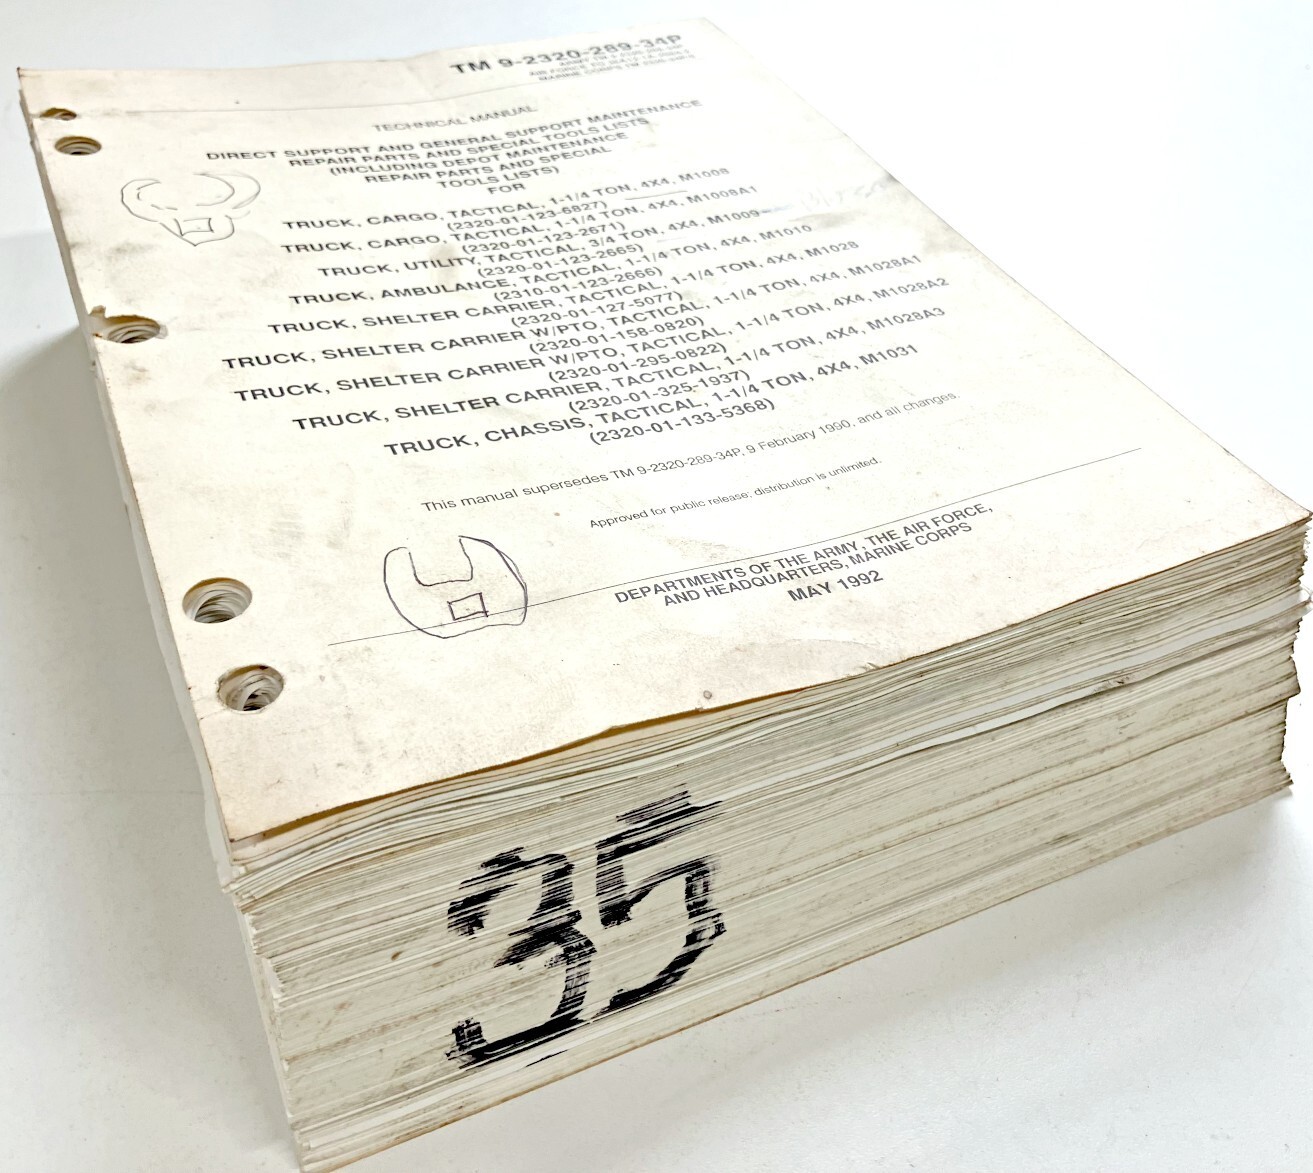 TM 9-2320-289-34P
TECHNICAL MANUAL
DIRECT SUPPORT AND GENERAL SUPPORT MAINTENANCE
REPAIR PARTS AND SPECIAL TOOLS LISTS
(INCLUDING DEPOT MAINTENANCE
REPAIR PARTS AND SPECIAL
TOOLS LISTS)
FOR
TRUCK, CARGO, TACTICAL, 1-1/4 TON, 4X4, M1008
(2320-01-123-6827)
TRUCK, CARGO, TACTICAL, 1-1/4 TON, 4X4, M1008A1
(2320-01-123-2671)
TRUCK, UTILITY, TACTICAL, 3/4 TON, 4X4, M1009
(2320-01-123-2665)
TRUCK, AMBULANCE, TACTICAL, 1-1/4 TON, 4X4, M1010
(2310-01-123-2666)
TRUCK, SHELTER CARRIER, TACTICAL, 1-1/4 TON, 4X4, M1028
(2320-01-127-5077)
TRUCK, SHELTER CARRIER W/PTO, TACTICAL, 1-1/4 TON, 4X4, M1028A1
(2320-01-158-0820)
TRUCK, SHELTER CARRIER W/PTO, TACTICAL, 1-1/4 TON, 4X4, M1028A2
(2320-01-295-0822)
TRUCK, SHELTER CARRIER, TACTICAL, 1-1/4 TON, 4X4, M1028A3
(2320-01-325-1937)
TRUCK, CHASSIS, TACTICAL, 1-1/4 TON, 4X4, M1031
(2320-01-133-5368)
This manual supersedes TM 9-2320-289-34P, 9 February 1990, and all changes.
Approved for public release; distribution is unlimited.
DEPARTMENTS OF THE ARMY, THE AIR FORCE,
AND HEADQUARTERS, MARINE CORPS
MAY 1992
35